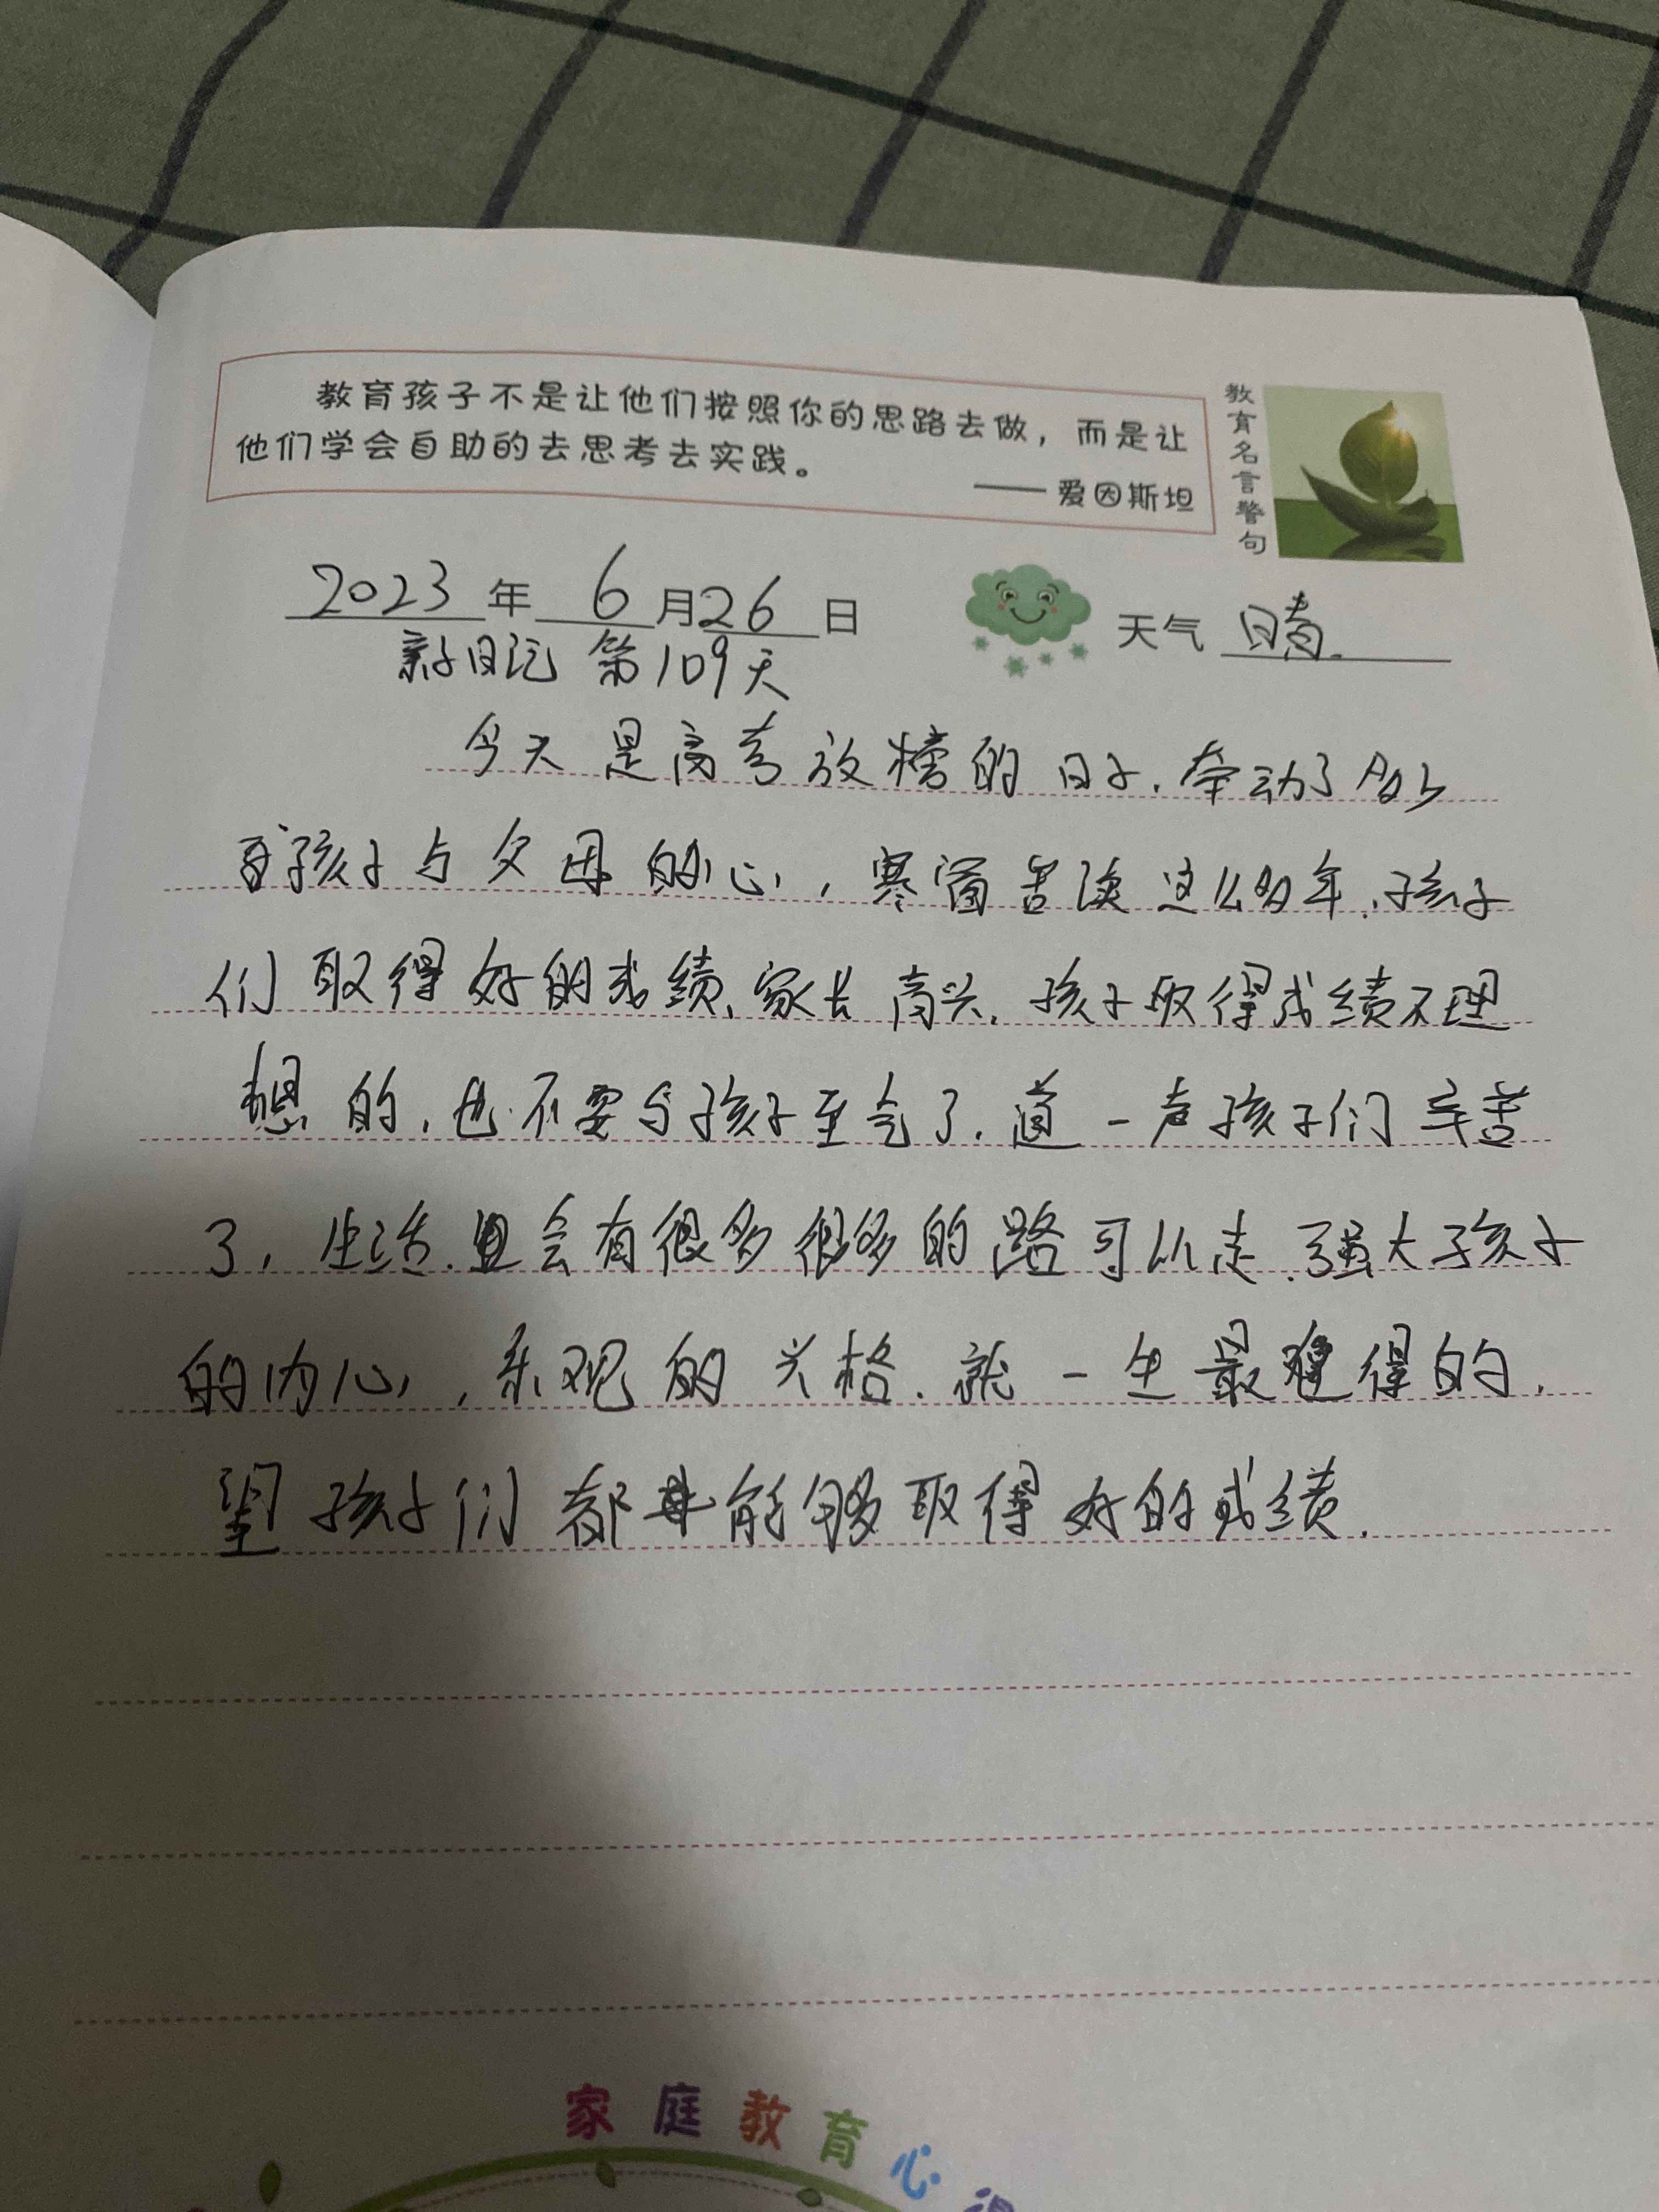 教育孩子不是让他们按照你的思路去做，而是让
他们学会自助的去思考去实践。
——爱因斯坦
教育名言警句
2023年6月26日
天气 晴.
亲子日记 第109天
今天是高考放榜的日子.牵动了
孩子与父母的心，寒窗苦读这么多年.孩子
们取得好的成绩、家长高兴.孩子取得成绩不理
想的.也不要与孩子至气了.道一声孩子们辛苦
了，生活.且会有很多很多的路可以走.强大孩子
的内心，乐观的兴格.就一生最难得的.
望孩子们都能够取得好的成绩.
家庭教育心得